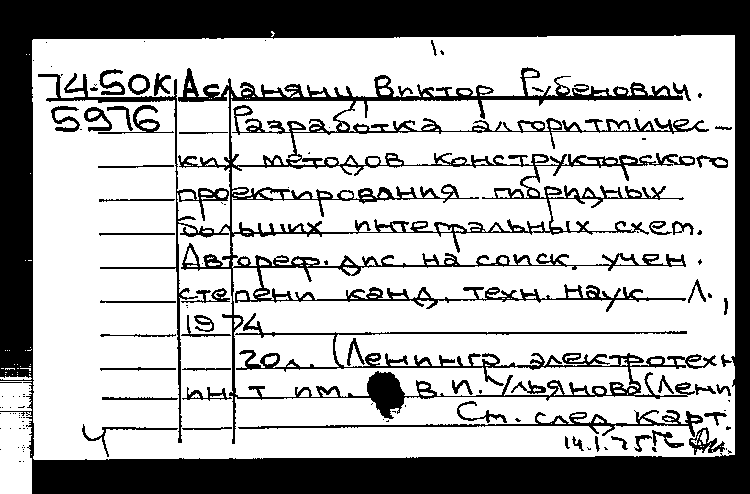 1.
74-50К Асланянц, Виктор Рубенович.
5976 Разработка алгоритмичес-
ких методов конструкторского
проектирования гибридных
больших интегральных схем.
Автореф. дис. на соиск. учен.
степени канд. техн. наук Л.,
1974.
20 л. (Ленингр. электротехн
ин-т им. В.И. Ульянова (Лени
См. след. карт.
14.I.75г.